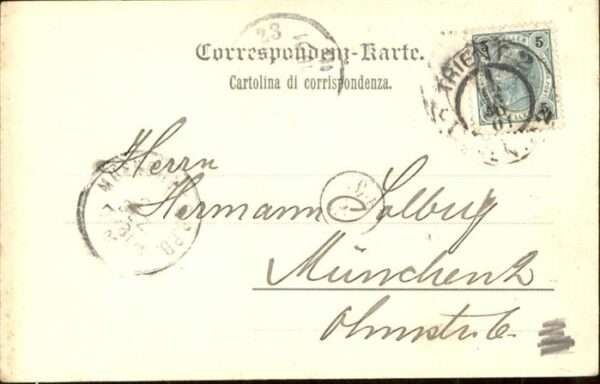 23
Correspondenz-Karte.
Cartolina di corrispondenza.
5
TRIENT 2
Herrn
Hermann Solbrig
München 2
Ohmstr. 6.